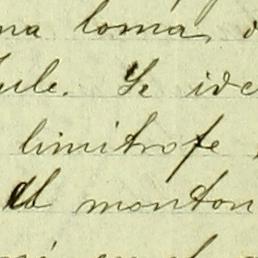 na loma
ule. Se ide
limitrofe
el monton